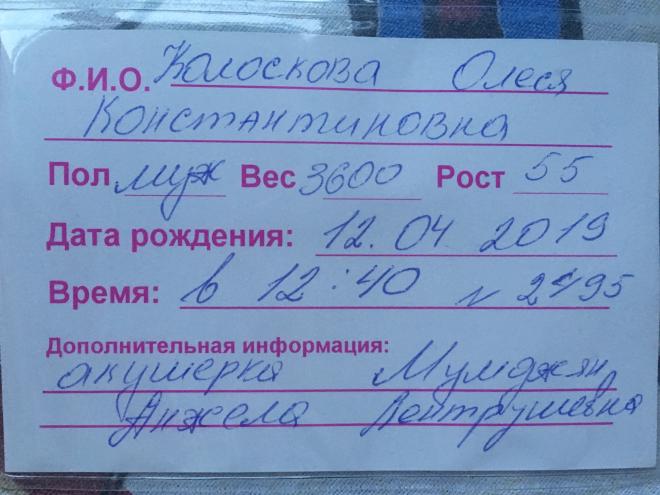 Ф.И.О. Колоскова Олеся
Константиновна
Пол муж Вес 3600 Рост 55
Дата рождения: 12.04 2019
Время: в 12:40 N 2495
Дополнительная информация:
акушерка Мумджян
Анжела